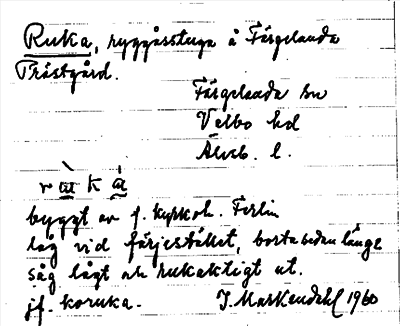 Ruka, ryggåsstuga å Färgelanda
Prästgård.
Färgelanda sn
Valbo hd
Älvsb. l.
byggt av f. kyrkoh. Ferlin
låg vid färjestället, borta sedan länge
såg lågt och rukaktigt ut.
jf. koruka. J. Markendahl 1960